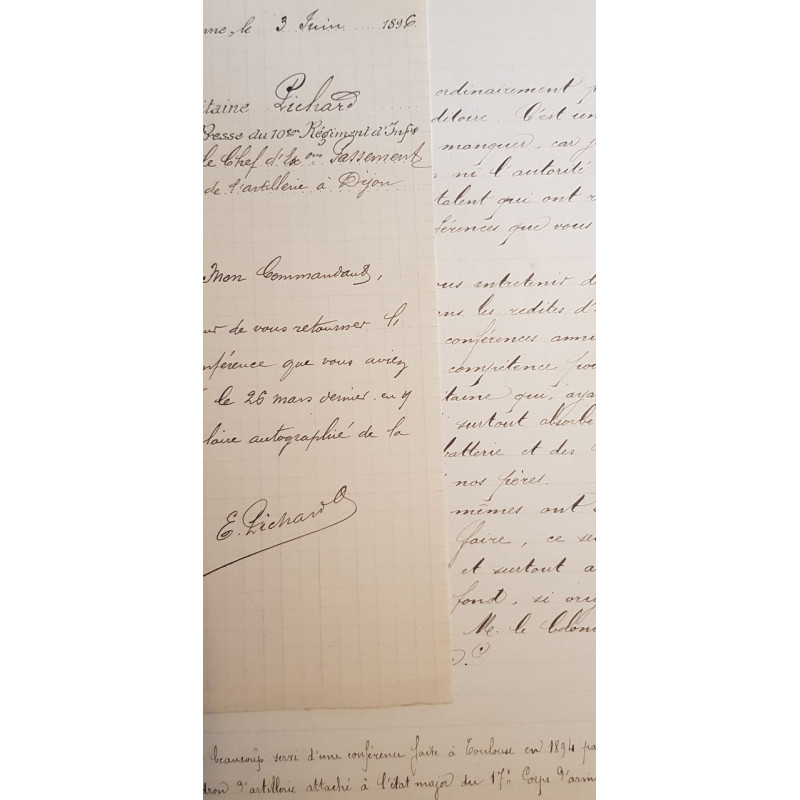 nne, le 3 Juin 1896
itaine Pichard
Presse du 10eme Régiment d'Infie
le Chef d'Eson Passement
de l'artillerie à Dijon
Mon Commandant,
ur de vous retourner
nférence que vous aviez
le 26 mars dernier en
laire autographié de la
E. Pichard
ordinairement
ditoire. C'est un
manquer, car
ni l'autorité
talent qui ont
férences que vous
ous entretenir d
ns les redites d'
conférences
compétence
taine qui, aya
surtout absorbé
batterie et des
nos frères.
mêmes ont
faire, ce se
et surtout a
fond, si
M. le Colon
beaucoup servi d'une conférence faite à Toulouse en 1894 pa
dron d'artillerie attaché à l'état major du 17e Corps d'arm